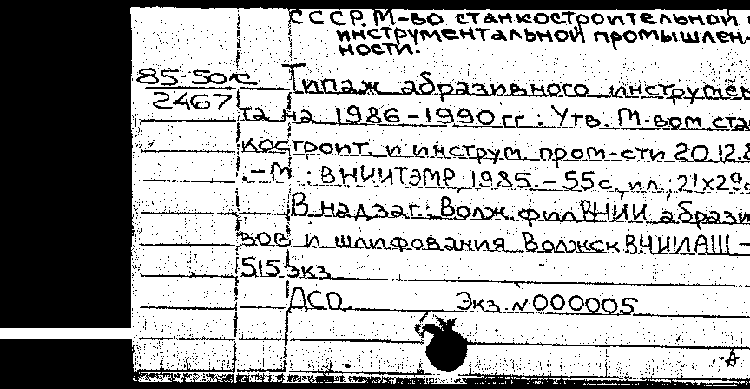 СССР. М-во станкостроительной и
инструментальной промышлен-
ности.
85-50к Типаж абразивного инструмен-
2467 та на 1986-1990 гг.: Утв. М-вом стан
костроит. и инструм. пром-сти 20.12.8
.-М.: ВНИИТЭМР, 1985.-55с., ил.; 21х29с
В надзаг.: Волж. фил. ВНИИ абрази
вов и шлифования Волжск ВНИИАШ -
515 экз.
ДСП. Экз. N 000005
А